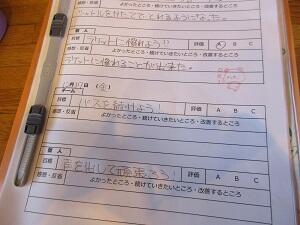 シャトルをたててとれるようになった。
個人
目標
ラケットに慣れよう!
評価 A B C
感想・反省
よかったところ・続けていきたいところ・改善するところ
ラケットに慣れることが出来た。
月17日(金)
チーム
目標
パスを続けよう!
評価 A B C
感想・反省
よかったところ・続けていきたいところ・改善するところ
個人
目標
声を出して頑張ろう!
評価 A B C
感想・反省
よかったところ・続けていきたいところ・改善するところ